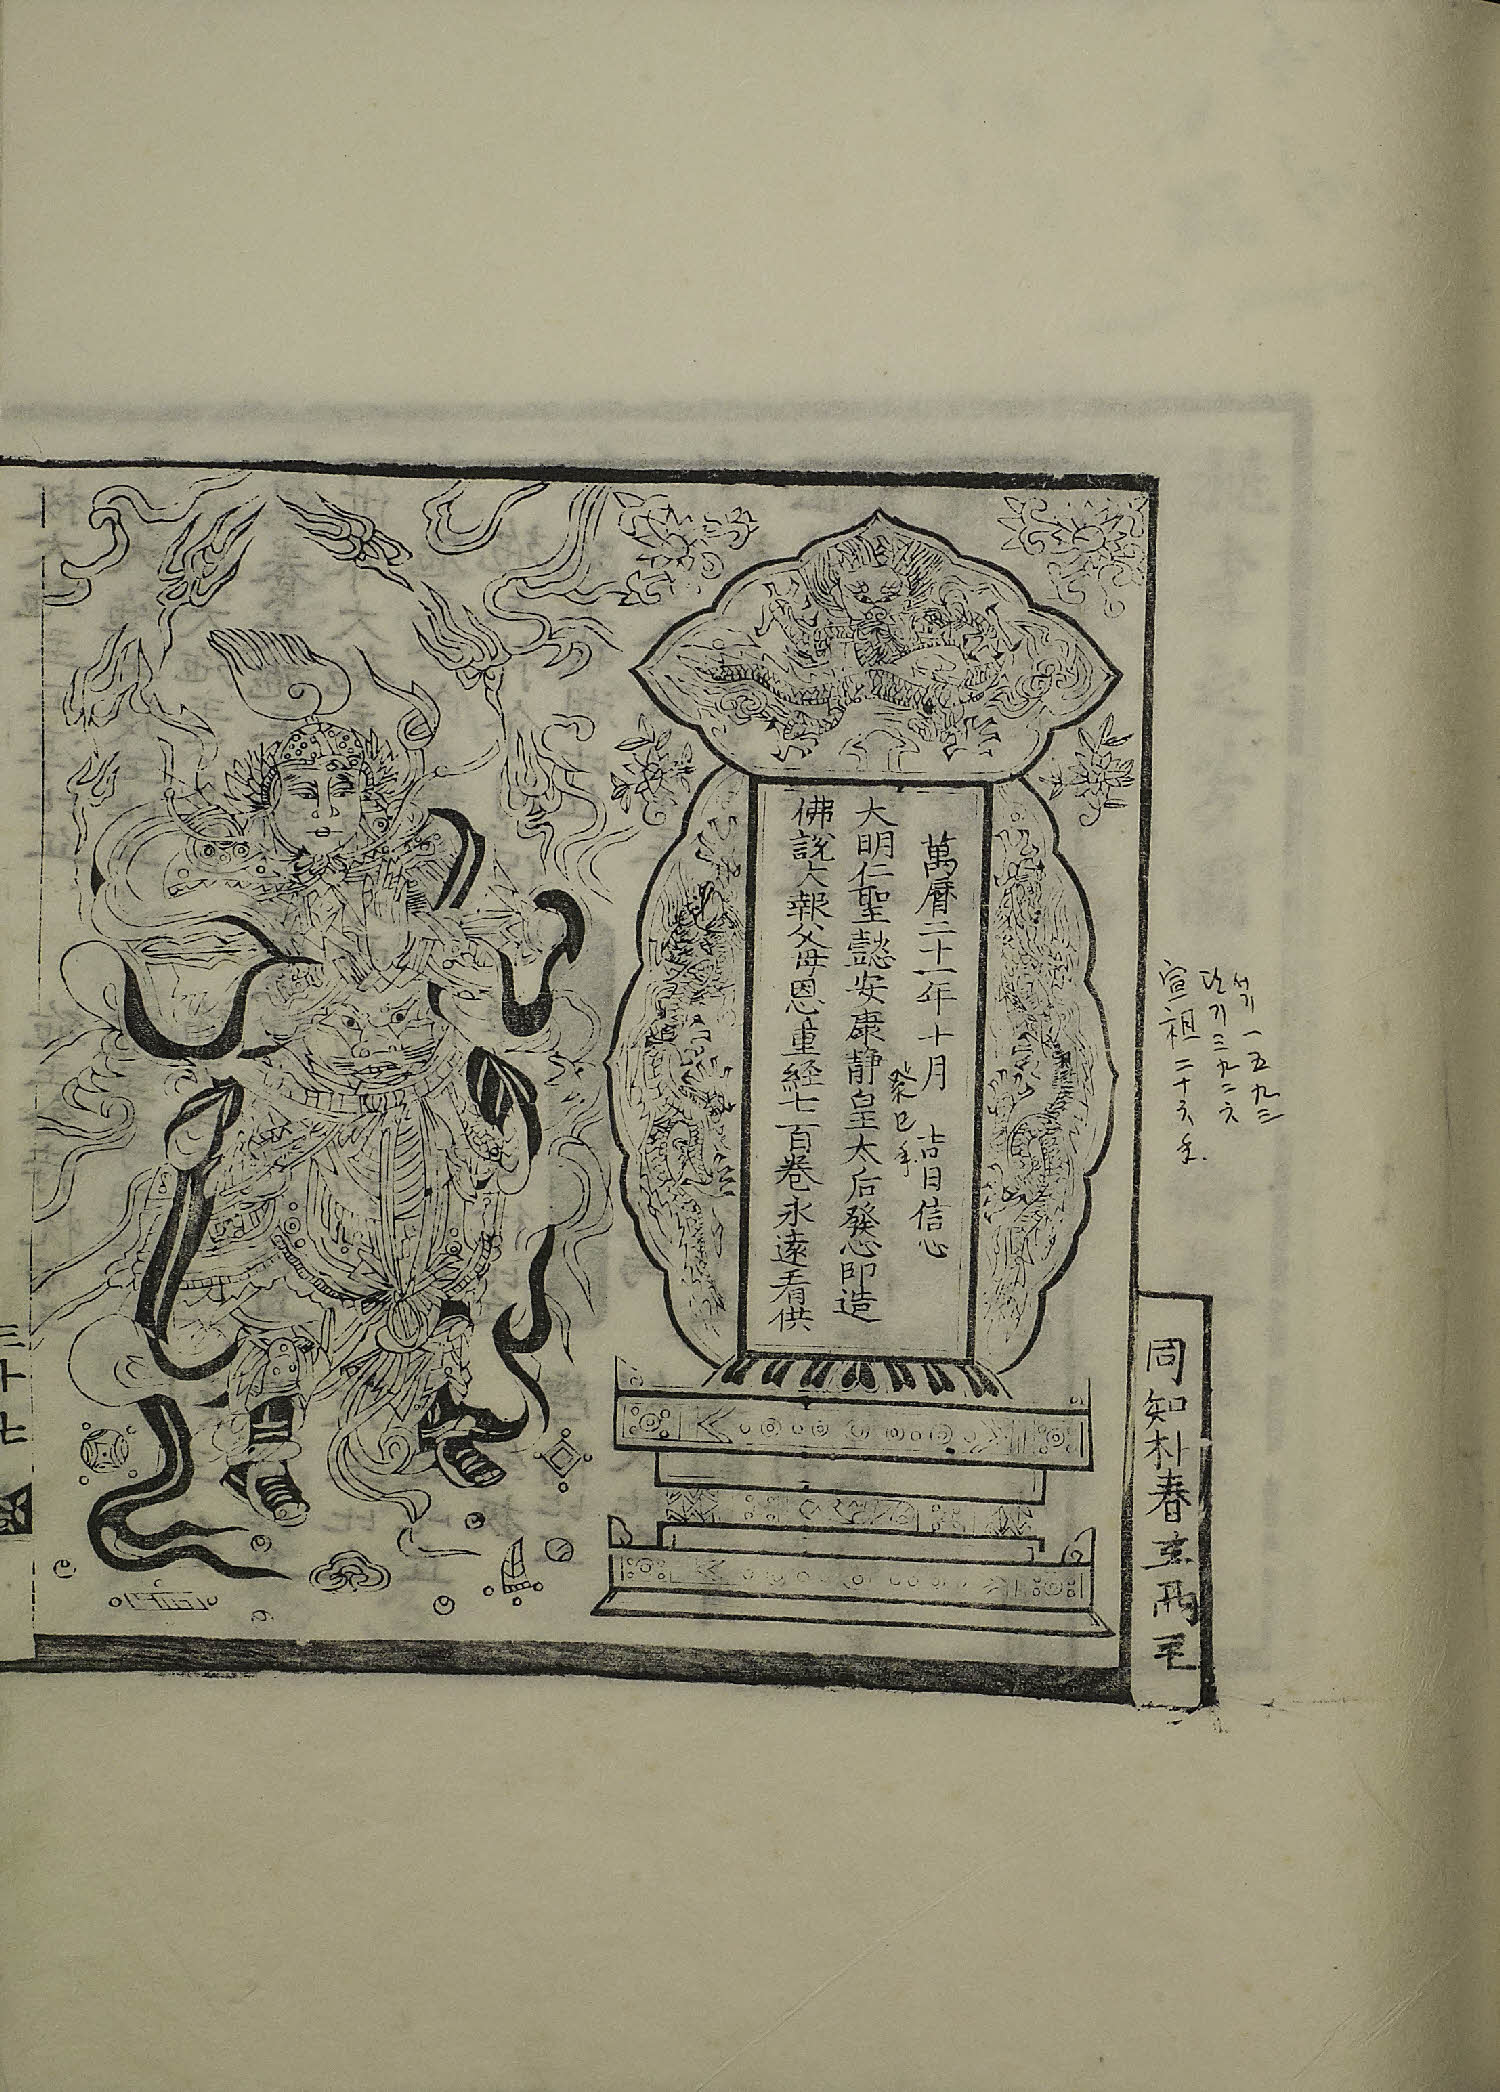 서기 一五九三
단기 三九二六
宣祖 二十六年.
同知朴春호兩主
萬曆二十一年十月 吉日信心
癸巳年
大明仁聖懿安康靜皇太后發心印造
佛說大報父母恩重経七百卷永遠看供
三十七